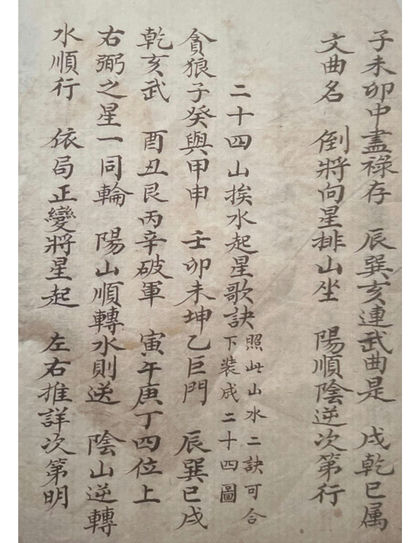 子未卯中盡祿存　辰巽亥連武曲是　戌乾巳属
文曲名　倒將向星排山坐　陽順陰逆次第行
二十四山挨水起星歌訣 照此山水二訣可合
下裝成二十四圖
貪狼子癸與甲申　壬卯未坤乙巨門　辰巽巳戌
乾亥武　酉丑艮丙辛破軍　寅午庚丁四位上
右弼之星一同輪　陽山順轉水則送　陰山逆轉
水順行　依局正變將星起　左右推詳次第明